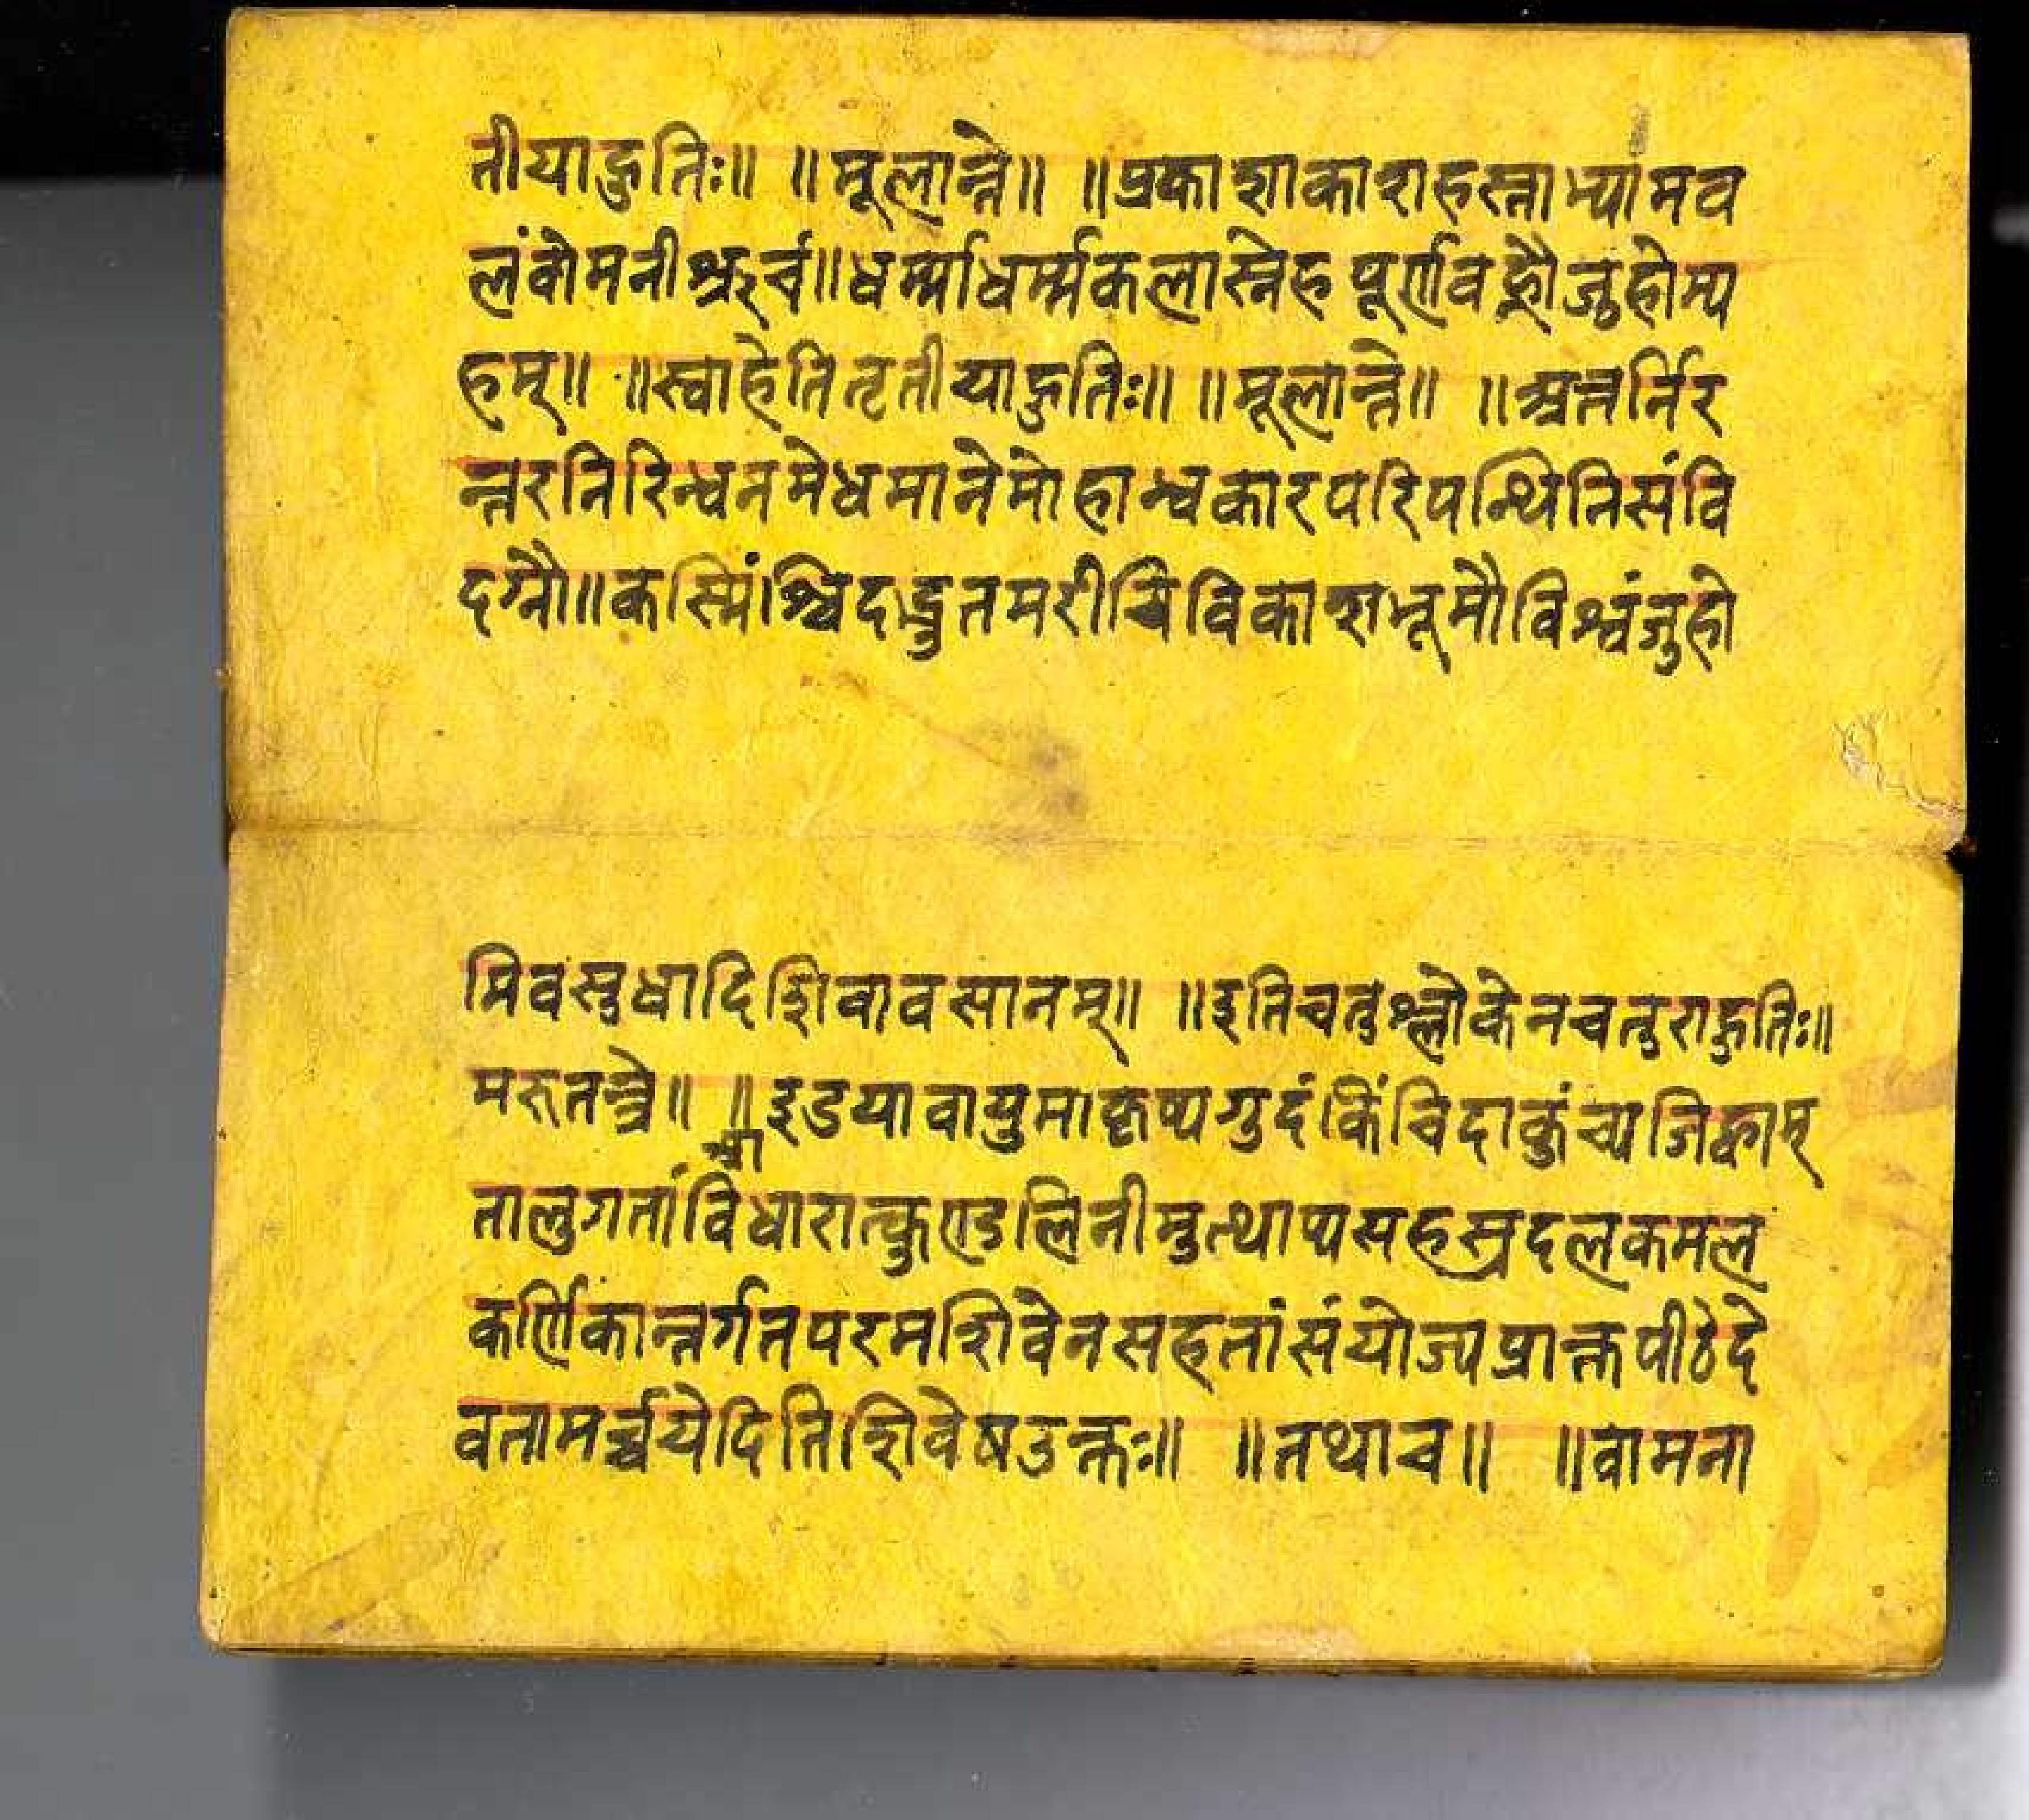 तीयाहुतिः॥ ॥मूलान्ते॥ ॥प्रकाशाकाशहस्ताभ्यामव
लंवोमनीश्रुर्च॥धर्म्माधर्म्मकलास्नेहपूर्णवह्नौजुहोम्य
हम्॥ ॥स्वाहेतितृतीयाहुतिः॥ ॥मूलान्ते॥ ॥अन्तर्निर
न्तरनिरिन्धनमेधमानेमोहान्धकारपरिपन्थिनिसंवि
दग्नौ॥कस्मिंश्चिदद्भुतमरीचिविकाशभूमौविश्वंजुहो
मिवसुधादिशिवावसानम्॥ ॥इतिचतुश्लोकेनचतुराहुतिः॥
मरुतन्त्रे॥ ॥इडयावायुमाकृष्यगुदंकिंचिदाकुंच्यजिह्वाम्
तालुगतांविधारात्कुण्डलिनीमुत्थाप्यसहस्रदलकमल
कर्णिकान्तर्गतपरमशिवेनसहतांसंयोज्यप्राक्तपीठेदे
वतामर्च्चयेदितिशिवेषउक्तः॥ ॥तथाच॥ ॥वामना